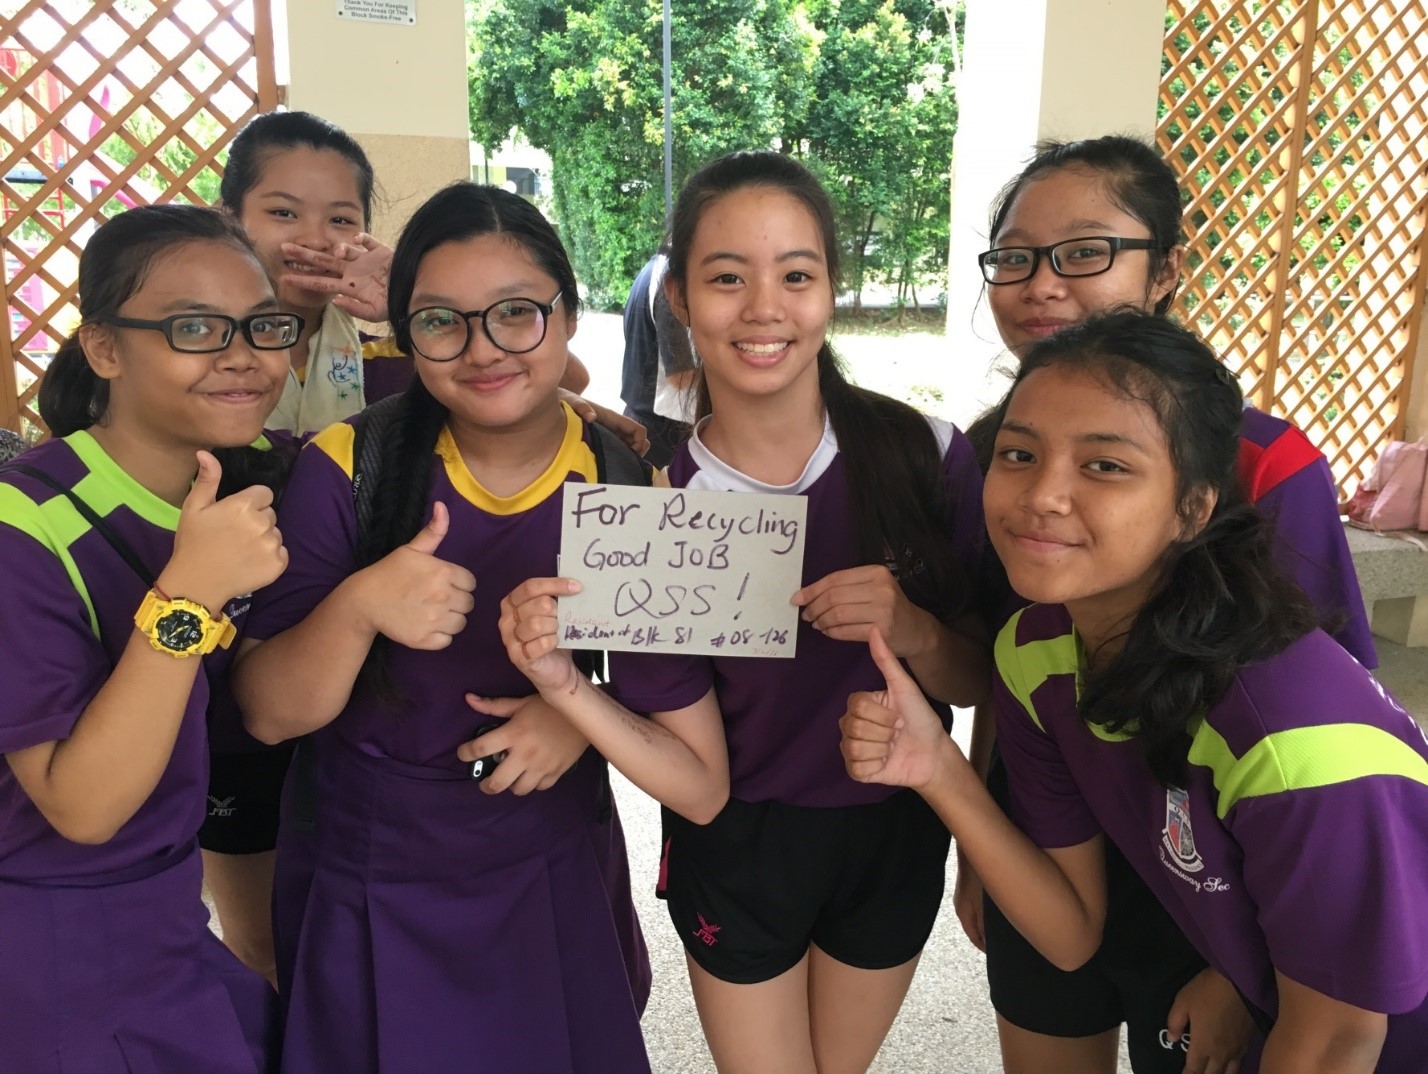 Thank You For Keeping
Common Areas Of This
Block Smoke-Free
For Recycling
Good JOB
QSS!
Resident
Resident of Blk 81 #08-126
FBT
FBT
Queensway Sec
QS